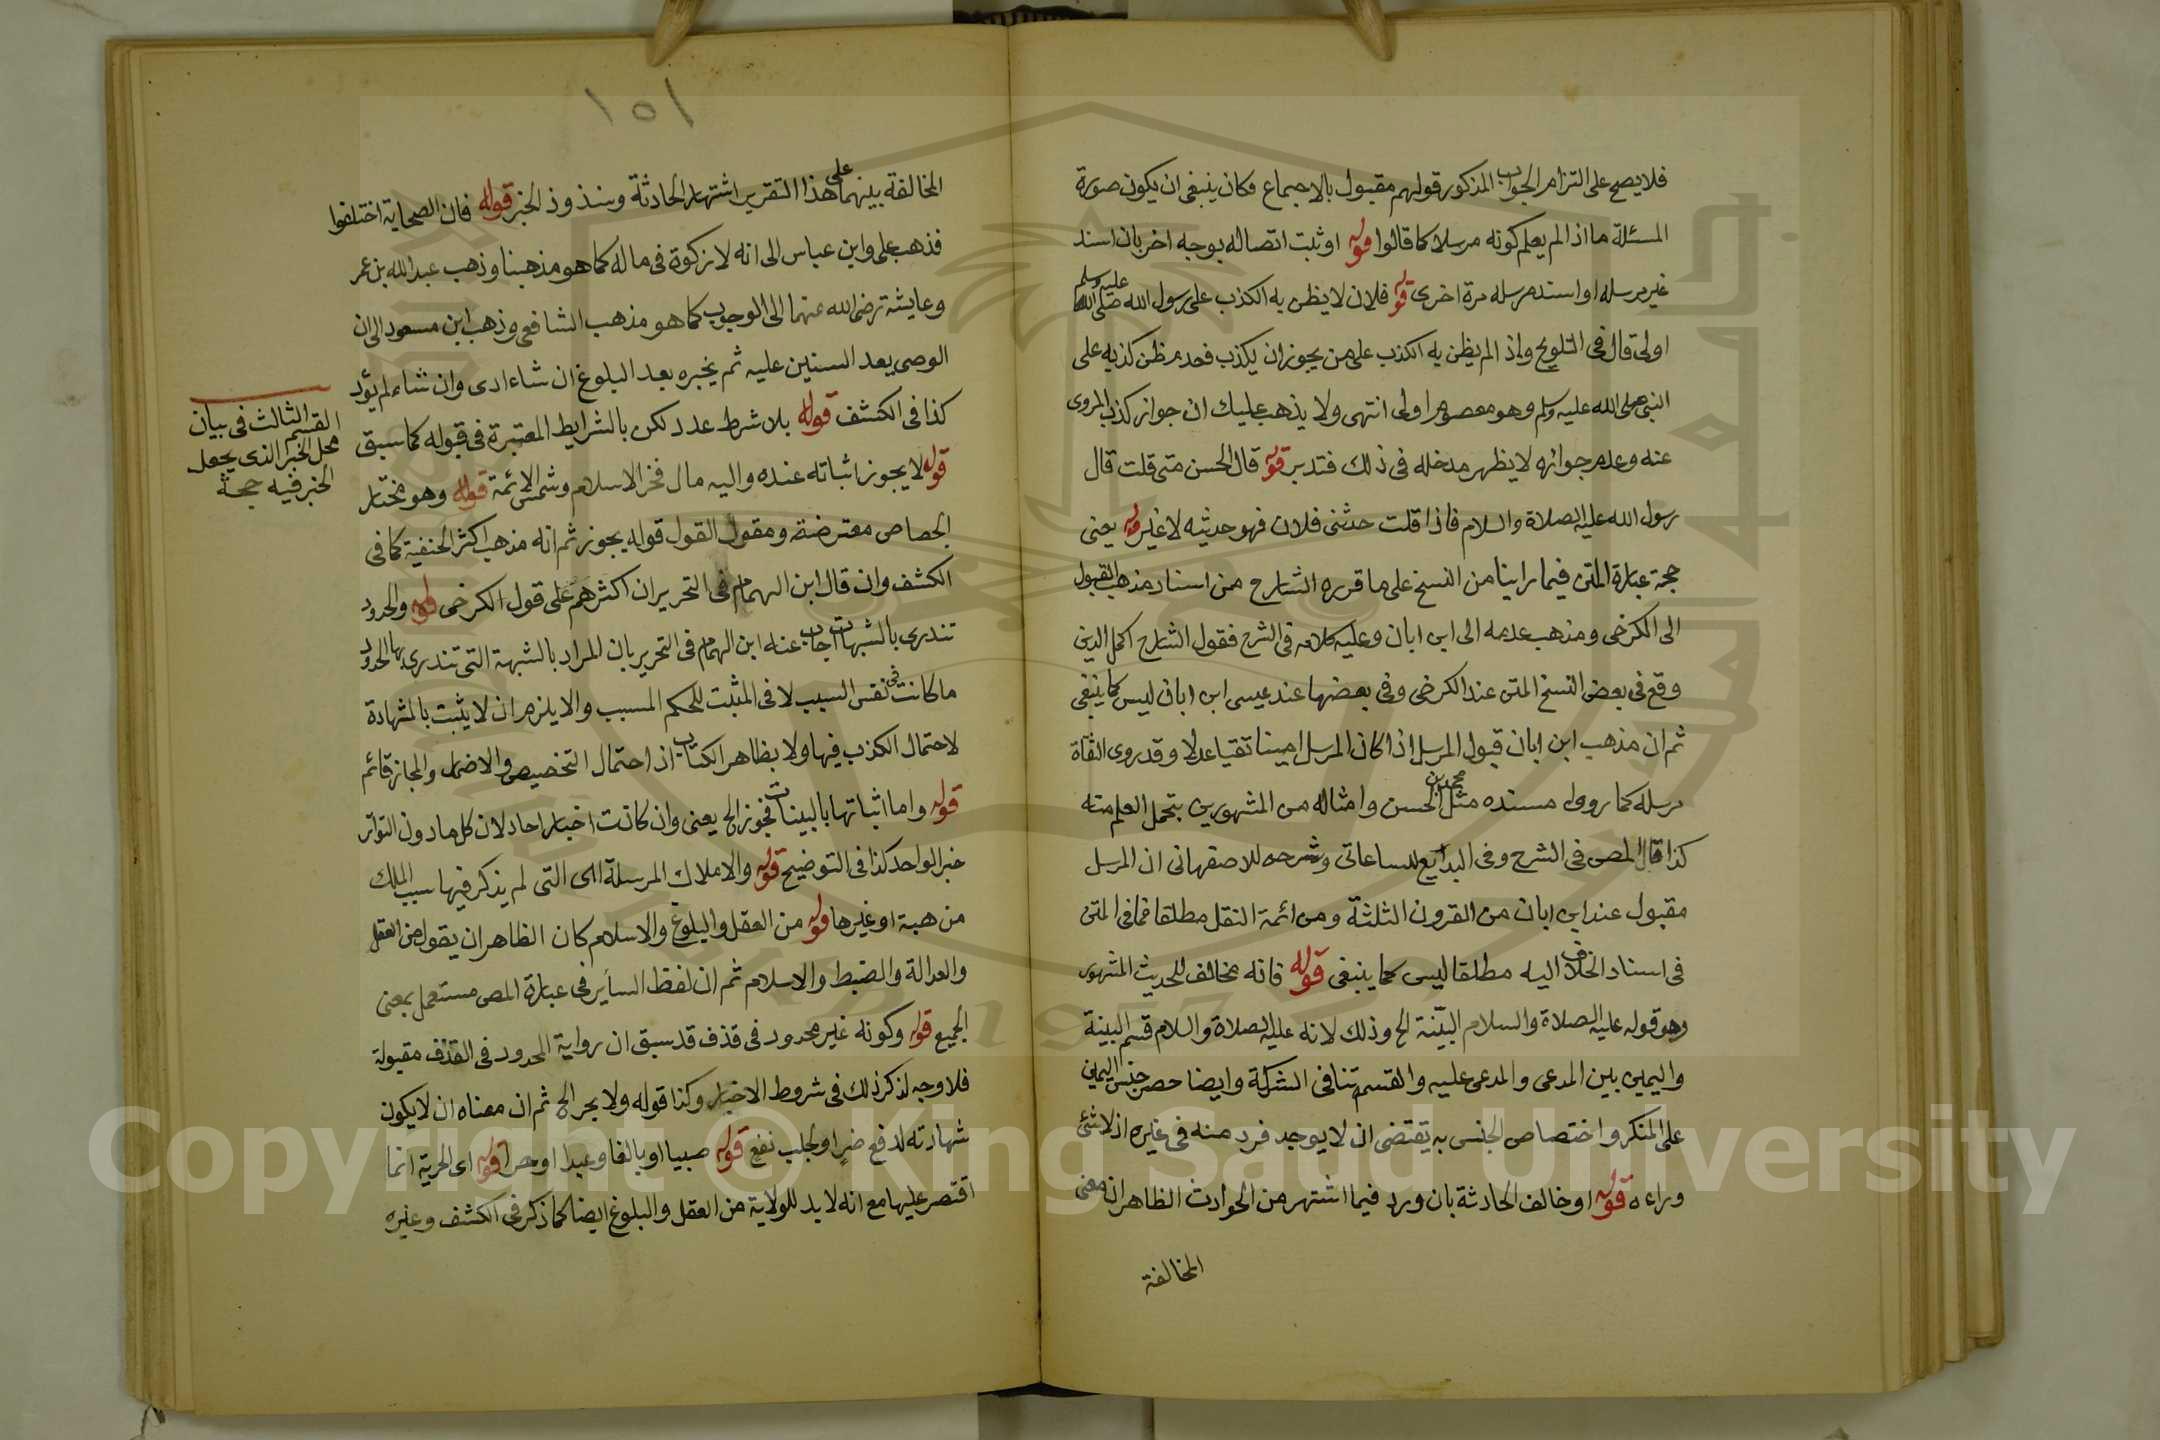 فلا يصح على التزام الجواب المذكور قولهم مقبول بالاجماع فكان ينبغي ان يكون صورة
المسئلة ما اذا لم يعلم كونه مرسلا كما قالوا قوله او ثبت اتصاله بوجه اخر بان اسند
غير مرسله او اسنده مرسله مرة اخرى قوله فلان لا يظن به الكذب على رسول الله صلى الله عليه وسلم
اولى قال في التلويح واذا لم يظن به الكذب على من يجوز ان يكذب فعدم ظن كذبه على
النبي صلى الله عليه وسلم وهو معصوم اولى انتهى ولا يذهب عليك ان جواز كذب المروى
عنه وعدم جوازه لا يظهر مدخله في ذلك فتدبر قوله قال الحسن متى قلت قال
رسول الله عليه الصلاة والسلام فاذا قلت حدثنى فلان فهو حديثه لا غير قوله يعنى
حجة عبارة المتن فيما راينا من النسخ على ما قرره الشارح من اسناد مذهب القبول
الى الكرخى ومذهب عدمه الى ابن ابان وعليه كلامه في الشرح فقول الشارح اكمل الدين
وقع في بعض النسخ المتن عند الكرخى وفي بعضها عند عيسى ابن ابان ليس كما ينبغي
ثم ان مذهب ابن ابان قبول المرسل اذا كان المرسل امينا تقيا عدلا وقد روى الثقاة
مرسله كما روى مسنده مثل محمد بن الحسن وامثاله من المشهورين بتحمل العلم منه
كذا قال المص في الشرح وفي البدايع للساعاتى وشرحه للاصفهانى ان المرسل
مقبول عند ابن ابان من القرون الثلثة ومن ائمة النقل مطلقا فما في المتن
في اسناد الخلاف اليه مطلقا ليس كما ينبغى قوله فانه مخالف للحديث المشهور
وهو قوله عليه الصلاة والسلام البيّنة الح وذلك لانه عليه الصلاة والسلام قسم البينة
واليمين بين المدعى والمدعى عليه والقسم تنافى الشركة وايضا حصر جنس اليمين
على المنكر واختصاص الجنس به يقتضى ان لا يوجد فرد منه في غيره اذ لا شئ
وراءه قوله او خالف الحادثة بان ورد فيما اشتهر من الحوادث الظاهر ان معنى
المخالفة
١٥١
المخالفة بينهما على هذا التقرير اشتهار الحادثة وشذوذ الخبر قوله فان الصحابة اختلفوا
فذهب على وابن عباس الى انه لا زكوة في ماله كما هو مذهبنا وذهب عبد الله بن عمر
وعايشة رضى الله عنهما الى الوجوب كما هو مذهب الشافعى وذهب ابن مسعود الى ان
الوصى يعد السنين عليه ثم يخبره بعد البلوغ ان شاء ادى وان شاء لم يؤد
كذا في الكشف قوله بلا شرط عدد لكن بالشرايط المعتبرة في قبوله كما سبق
قوله لا يجوز اثباته عنده واليه مال فخر الاسلام وشمس الائمة قوله وهو مختار
الجصاص معترضة ومقول القول قوله يجوز ثم انه مذهب اكثر الحنفية كما في
الكشف وان قال ابن الهمام في التحرير ان اكثرهم على قول الكرخى قوله والحدود
تندرى بالشبهات اجاب عنه ابن الهمام في التحرير بان المراد بالشبهة التى تندرى بها الحدود
ما كانت في نفس السبب لا في المثبت للحكم المسبب والا يلزم ان لا يثبت بالشهادة
لاحتمال الكذب فيها ولا بظاهر الكتاب اذ احتمال التخصيص والاضمار والمجاز قائم
قوله واما اثباتها بالبينات فجوز الح يعنى وان كانت اخبار احاد لان كل ما دون التواتر
خبر الواحد كذا في التوضيح قوله والاملاك المرسلة اى التى لم يذكر فيها سبب الملك
من هبة او غيرها قوله من العقل والبلوغ والاسلام كان الظاهر ان يقول من العقل
والعدالة والضبط والاسلام ثم ان لفظ السائر في عبارة المص مستعمل بمعنى
الجميع قوله وكونه غير محدود في قذف قد سبق ان رواية المحدود في القذف مقبولة
فلا وجه لذكر ذلك في شروط الاخبار وكذا قوله ولا يجر الح ثم ان معناه ان لا يكون
شهادته لدفع ضر او لجلب نفع قوله صبيا او بالغا وعبدا او حرا قوله اى الحرية انما
اقتصر عليها مع انه لا بد للولاية من العقل والبلوغ ايضا كما ذكر في الكشف وغيره
القسم الثالث في بيان
محل الخبر الذى يجعل
الخبر فيه حجة
Copyright © King Saud University